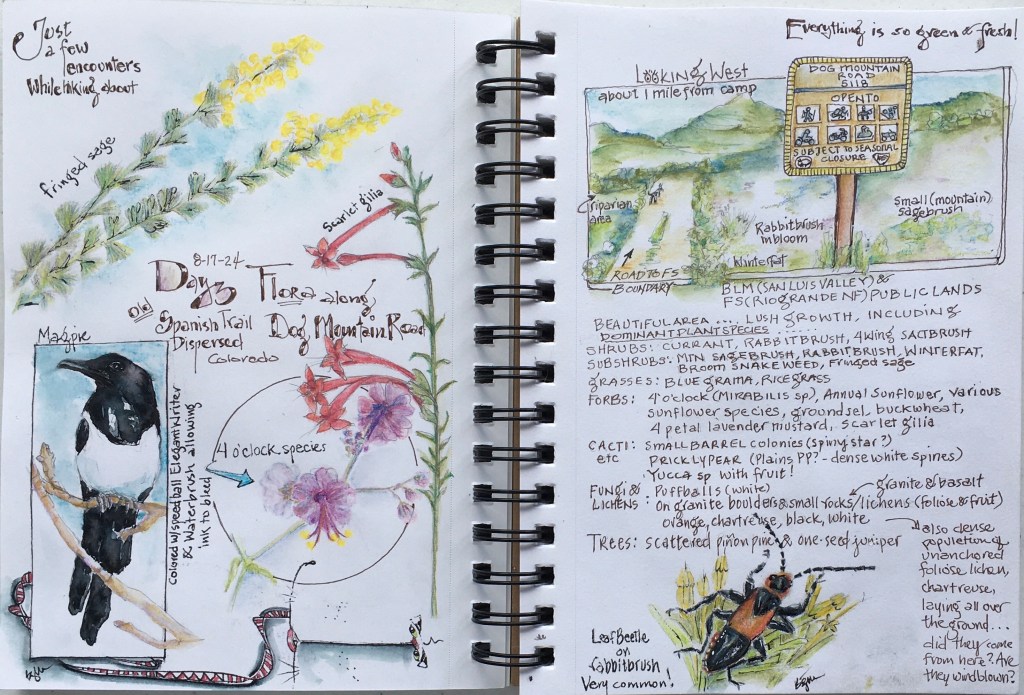 Just
a few
encounters
while hiking about
fringed sage
Scarlet gilia
8-17-24
Day 3 Flora along
Old
Spanish Trail Dog Mountain Road
Dispersed
Colorado
Magpie
colored w/ speedball Elegant Writer
& Waterbrush allowing
ink to bleed
4 o'clock species
Everything is so green & fresh!
Looking West
about 1 mile from camp
DOG MOUNTAIN
ROAD
5118
OPEN TO
SUBJECT TO SEASONAL
CLOSURE
riparian
area
Rabbitbrush
in bloom
Small (mountain)
sagebrush
Winterfat
ROAD TO FS
BOUNDARY
BLM (SAN LUIS VALLEY) &
FS (RIO GRANDE NF) PUBLIC LANDS
BEAUTIFUL AREA .... LUSH GROWTH, INCLUDING
DOMINANT PLANT SPECIES ......
SHRUBS: CURRANT, RABBITBRUSH, 4 WING SALTBRUSH
SUBSHRUBS: MTN SAGEBRUSH, RABBITBRUSH, WINTERFAT,
BROOM SNAKEWEED, Fringed sage
GRASSES: BLUE grama, RICEGRASS
FORBS: 4 o'clock (MIRABILIS sp), Annual Sunflower, various
sunflower species, groundsel, buckwheat,
4 petal lavender mustard, scarlet gilia
CACTI: SMALL BARREL colonies (spiny star?)
etc PRICKLY PEAR (Plains PP? - dense white spines)
Yucca sp with fruit!
granite & basalt
FUNGI & Puffballs (white)
LICHENS: On granite boulders & small rocks/lichens (foliose & fruit)
orange, chartreuse, black, white
TREES: scattered piñon pine & one-seed juniper
also dense
population of
unanchored
foliose lichen,
chartreuse,
laying all over
the ground...
did they come
from here? Are
they windblown?
Leaf Beetle
on
rabbitbrush
Very common!